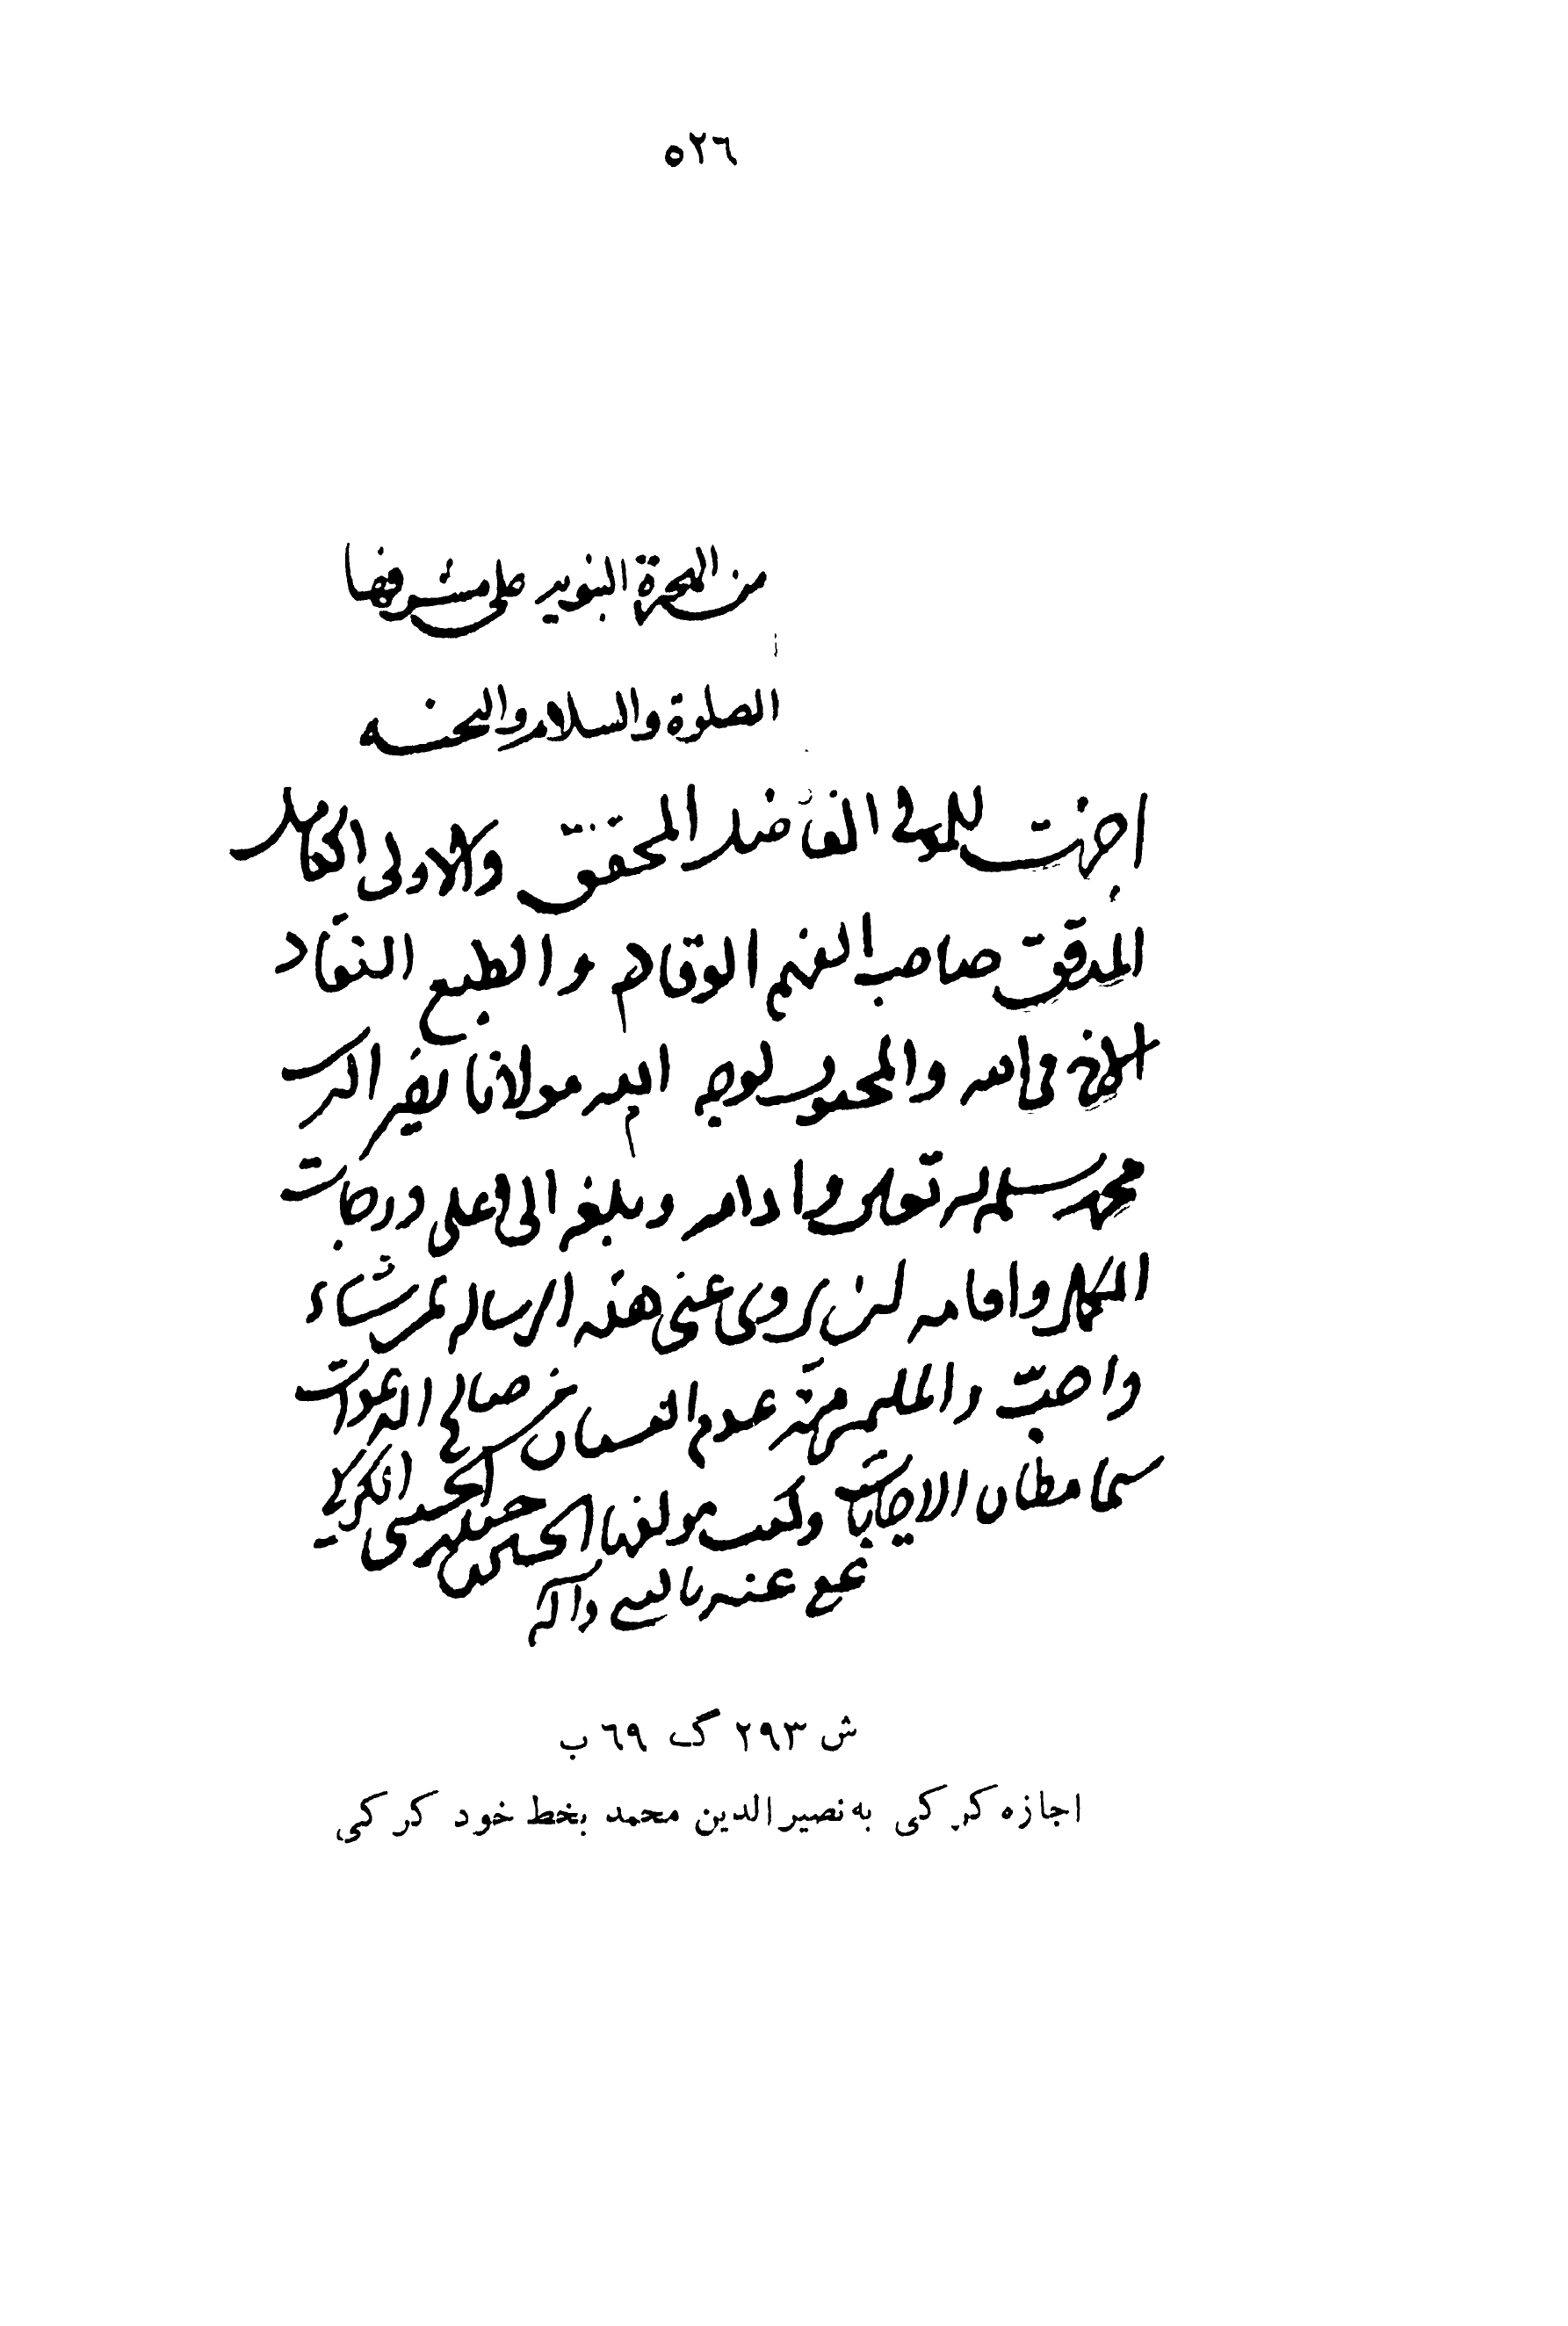 ٥٢٦
من الهجرة النبويه على مشرفها
الصلوة والسلام والتحيه
اجزت للمولى الفاضل المحقق والاولى الكامل
المدقق صاحب الفهم الوقاد والطبع النقاد
الاخ فى الله والمحبوب لوجه الله مولانا نصير الدين
محمد سلمه الله تعالى وادامه وبلغه الى اعلى درجات
الكمال واقامه لن يروى عنى هذه الرساله لمن شاء
واحبّ والملتمس منه عدم النسيان من صالح الدعوات
سيما مظان الاجابات وكتب مولفها الحسين بن حيدر الحسينى الكركي
عفى عنه بالنبي وآله
ش ٢٩٣ گ ٦٩ ب
اجازه کرکی به نصیرالدین محمد بخط خود کرکی